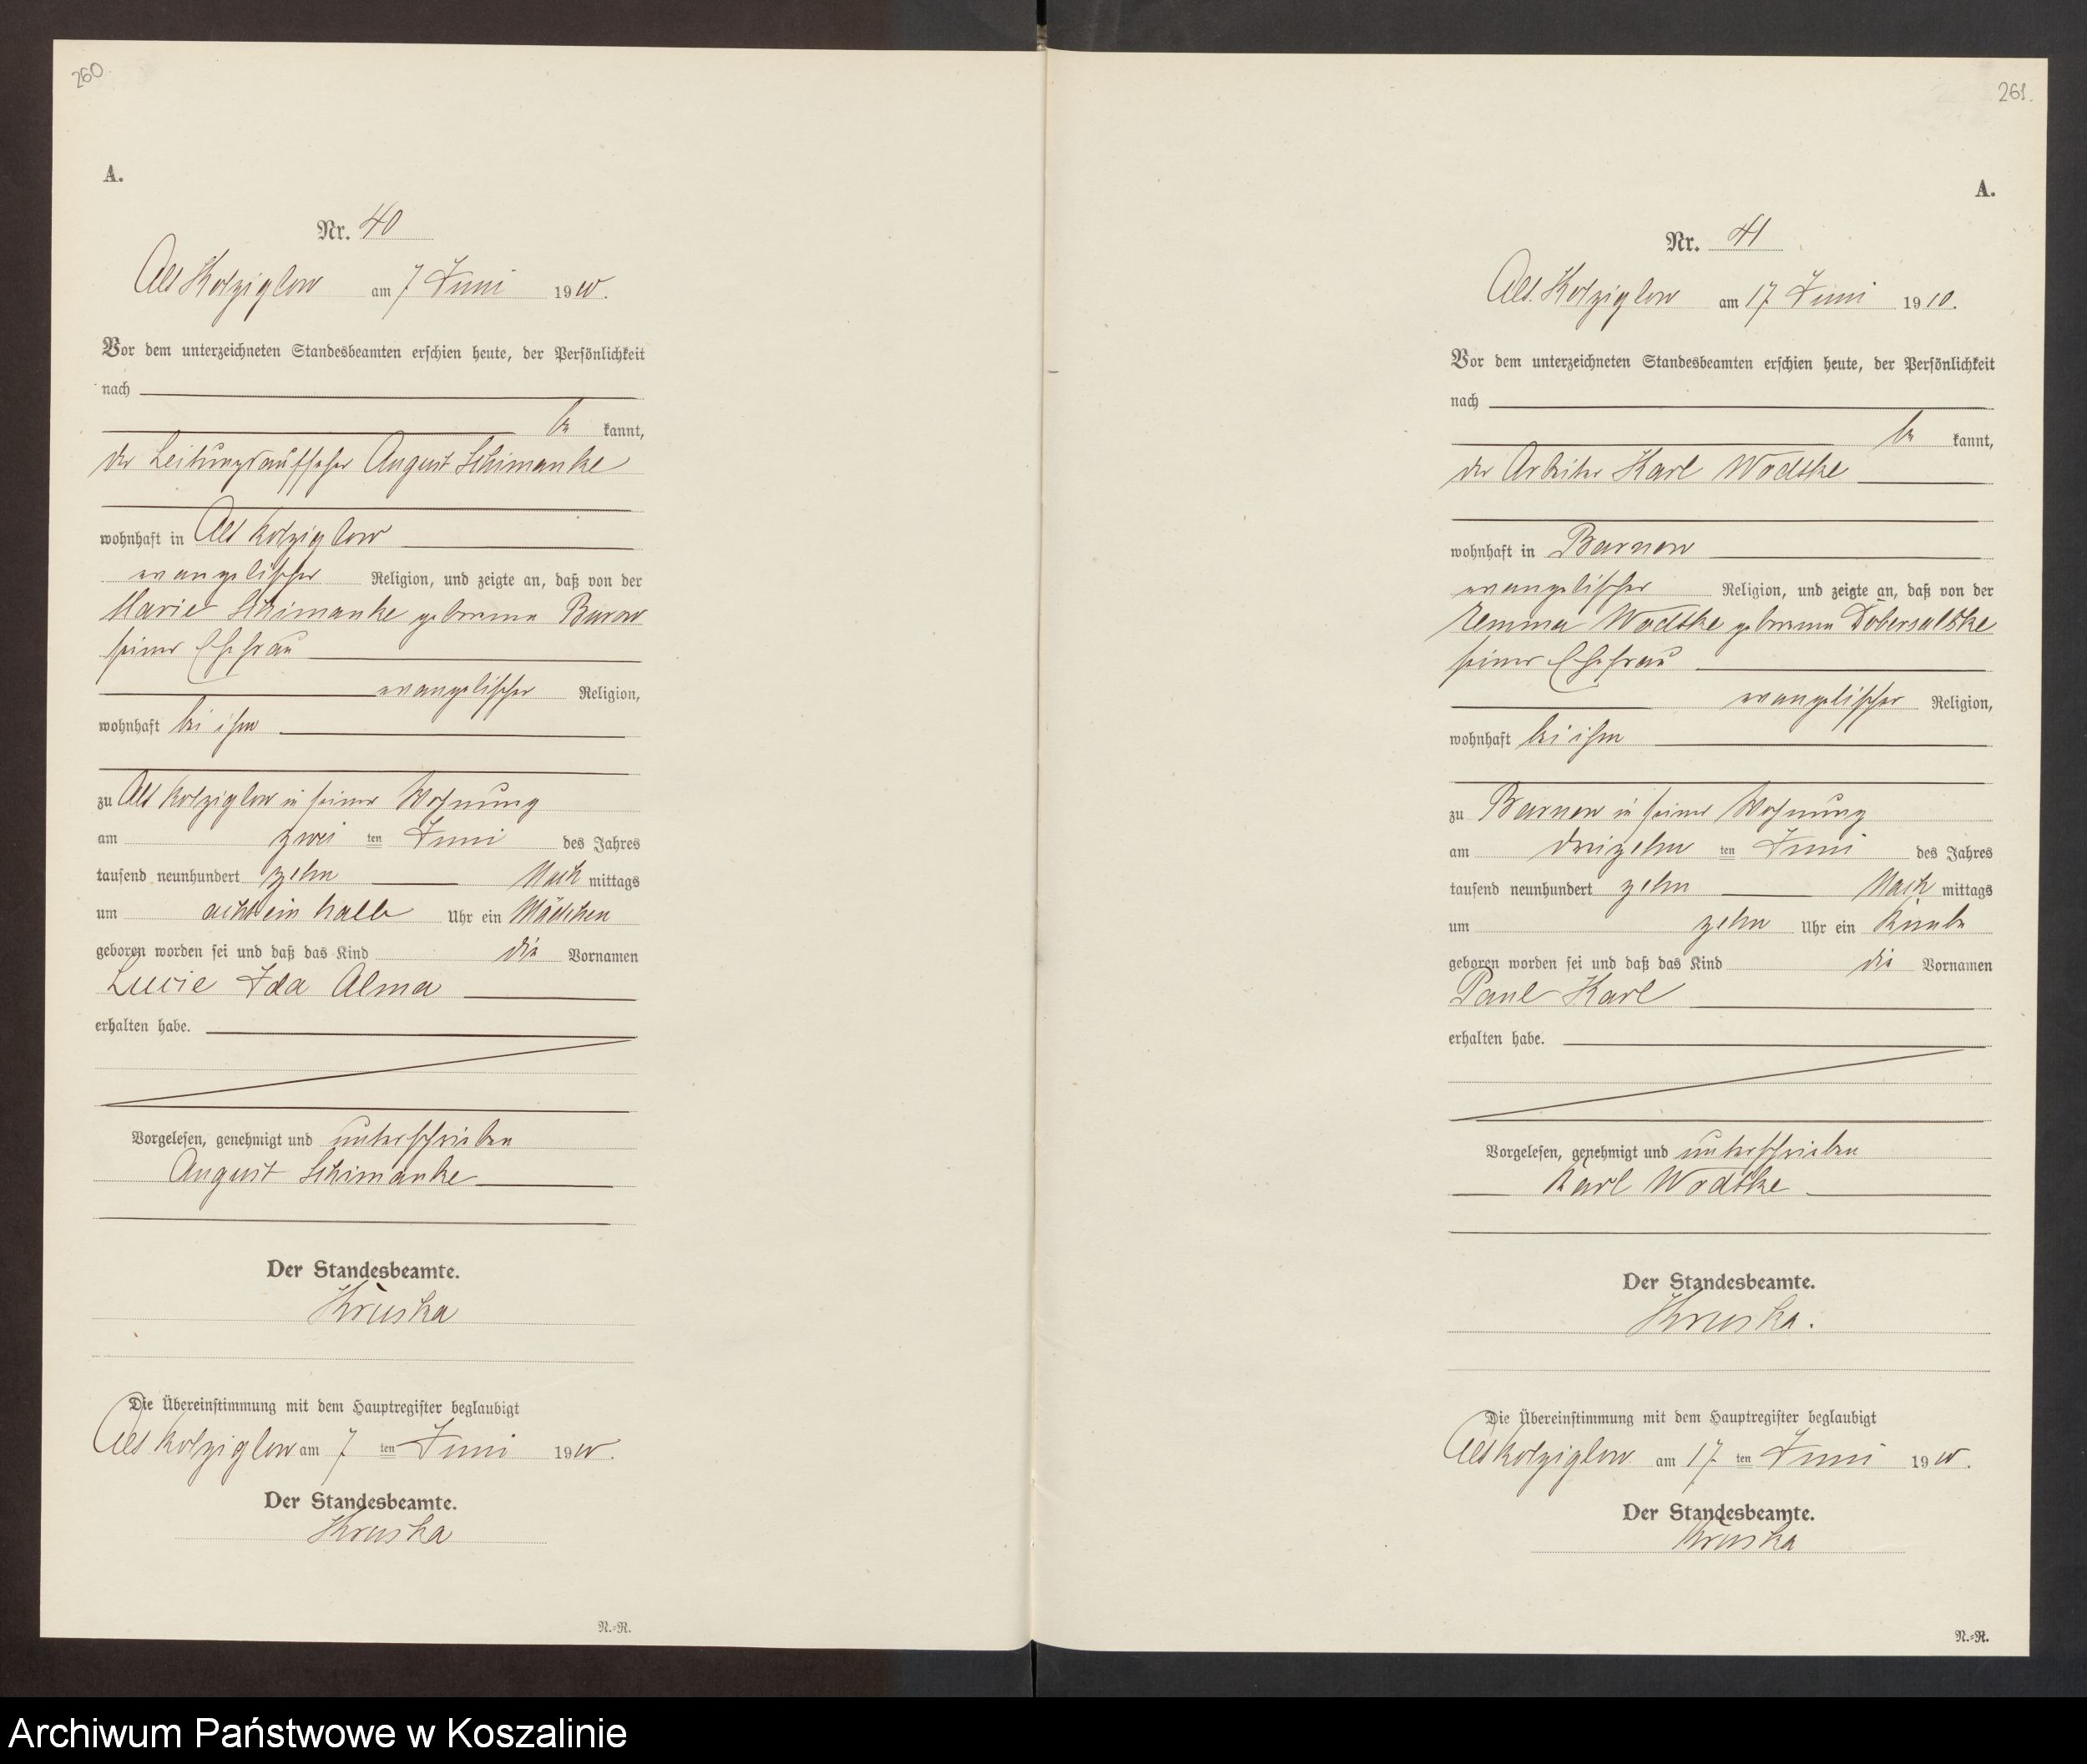 260.
A.
Nr. 40
Alt Kolziglow am 7 Juni 1910.
Vor dem unterzeichneten Standesbeamten erschien heute, der Persönlichkeit
nach
be kannt,
der Leitungsaufseher August Schimanke
wohnhaft in Alt Kolziglow
evangelischer Religion, und zeigte an, daß von der
Marie Schimanke geborenen Burow
seiner Ehefrau
evangelischer Religion,
wohnhaft bei ihm
zu Alt Kolziglow in seiner Wohnung
am zwei ten Juni des Jahres
tausend neunhundert zehn Nach mittags
um achtein halb Uhr ein Mädchen
geboren worden sei und daß das Kind die Vornamen
Lucie Ida Alma
erhalten habe.
Vorgelesen, genehmigt und unterschrieben
August Schimanke
Der Standesbeamte.
Kruska
Die Übereinstimmung mit dem Hauptregister beglaubigt
Alt Kolziglow am 7 ten Juni 1910.
Der Standesbeamte.
Kruska
N.=R.
261.
A.
Nr. 41
Alt. Kolziglow am 17 Juni 1910.
Vor dem unterzeichneten Standesbeamten erschien heute, der Persönlichkeit
nach
be kannt,
der Arbeiter Karl Wodtke
wohnhaft in Barnow
evangelischer Religion, und zeigte an, daß von der
Emma Wodtke geborenen Dobersalske
seiner Ehefrau
evangelischer Religion,
wohnhaft bei ihm
zu Barnow in seiner Wohnung
am dreizehn ten Juni des Jahres
tausend neunhundert zehn Nach mittags
um zehn Uhr ein Knabe
geboren worden sei und daß das Kind die Vornamen
Paul Karl
erhalten habe.
Vorgelesen, genehmigt und unterschrieben
Karl Wodtke
Der Standesbeamte.
Kruska.
Die Übereinstimmung mit dem Hauptregister beglaubigt
Alt Kolziglow am 17 ten Juni 1910.
Der Standesbeamte.
Kruska
N.=R.
Archiwum Państwowe w Koszalinie